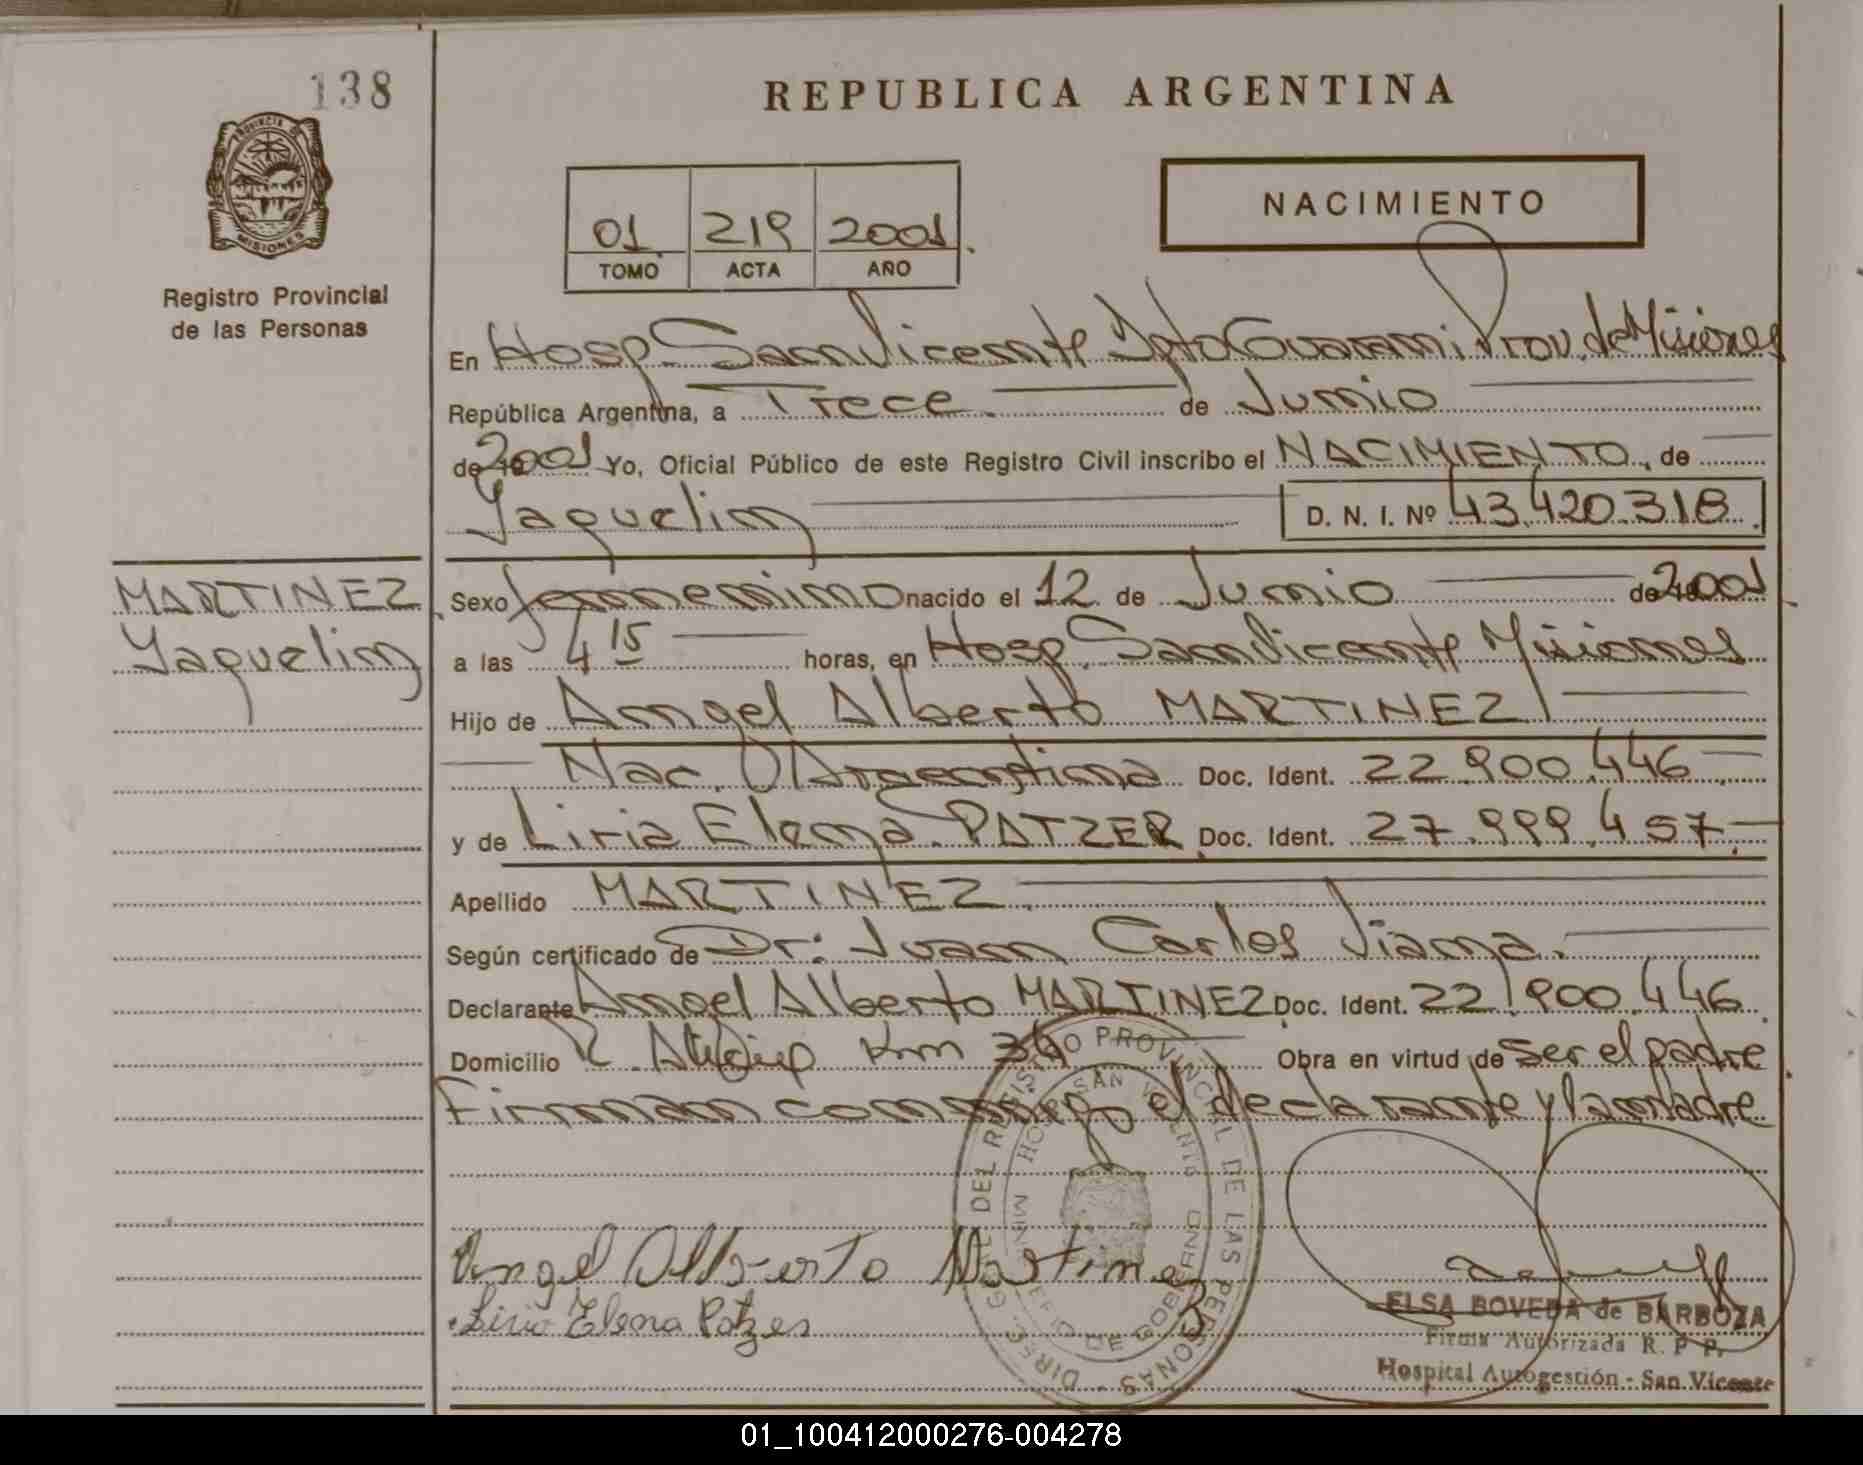 138
REPUBLICA ARGENTINA
PROVINCIA DE
MISIONES
Registro Provincial
de las Personas
01 219 2001
TOMO ACTA AÑO
NACIMIENTO
En Hosp. San Vicente Dpto Guarani Prov. de Misiones
República Argentina, a Trece de Junio
de 2001 Yo, Oficial Público de este Registro Civil inscribo el NACIMIENTO, de
Yaquelin D. N. I. Nº 43.420.318
MARTINEZ
Yaquelin
Sexo femenino nacido el 12 de Junio de 2001
a las 4 15 horas, en Hosp. San Vicente Misiones
Hijo de Angel Alberto MARTINEZ
Nac. Argentina Doc. Ident. 22.900.446
y de Liria Elena PATZER Doc. Ident. 27.999.457
Apellido MARTINEZ
Según certificado de Dr: Juan Carlos Viana
Declarante Angel Alberto MARTINEZ Doc. Ident. 22.900.446
Domicilio Km Obra en virtud de ser el padre
Firman conmigo el declarante y la madre
DIREC. GRAL. DEL REGISTRO PROVINCIAL DE LAS PERSONAS
HOSP. SAN VICENTE
MINISTERIO DE GOBIERNO
Angel Alberto Martinez
Liria Elena Patzer
ELSA BOVEDA de BARBOZA
Firma Autorizada R. P. P.
Hospital Autogestión - San Vicente
01_100412000276-004278